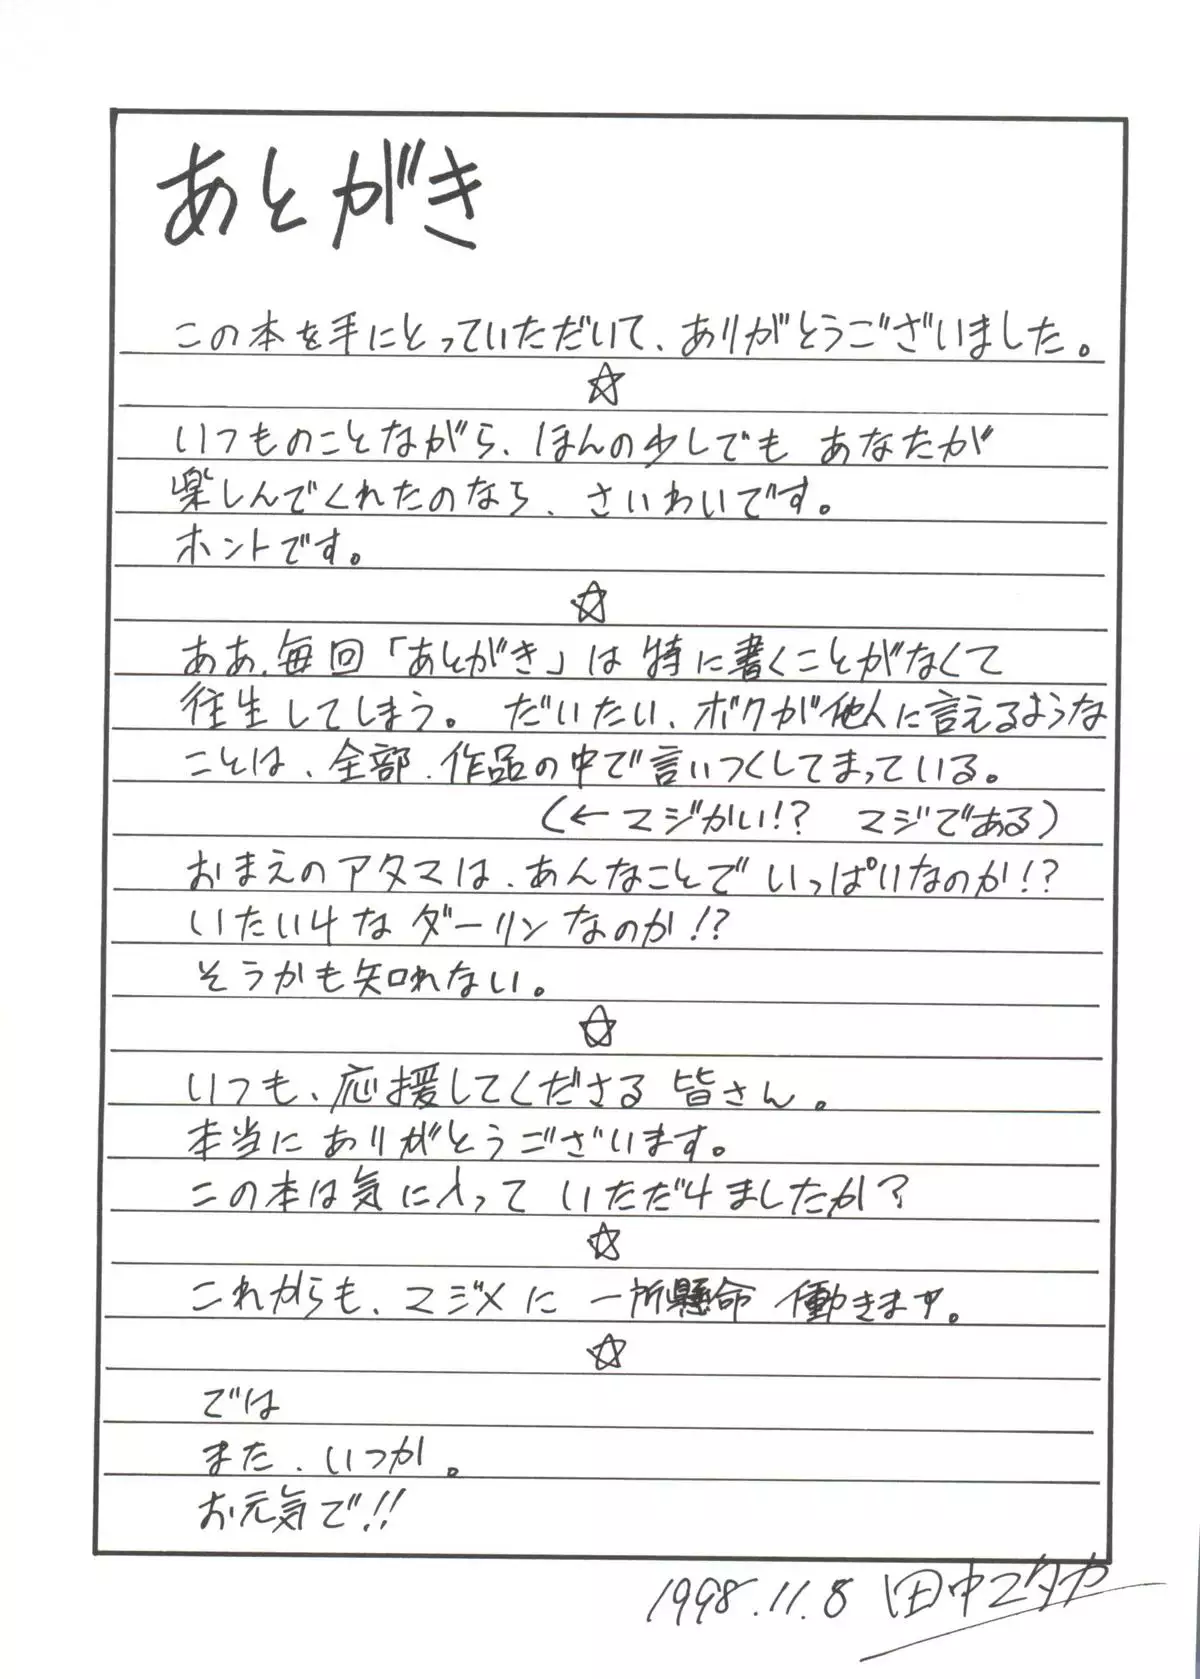 あとがき
この本を手にとっていただいて、ありがとうございました。
☆
いつものことながら、ほんの少しでも あなたが
楽しんでくれたのなら、さいわいです。
ホントです。
☆
ああ、毎回「あとがき」は特に書くことがなくて
往生してしまう。だいたい、ボクが他人に言えるような
ことは、全部、作品の中で言いつくしてまっている。
(←マジかい!? マジである)
おまえのアタマは、あんなことでいっぱいなのか!?
いたいけなダーリンなのか!?
そうかも知れない。
☆
いつも、応援してくださる皆さん。
本当にありがとうございます。
この本は気に入って いただけましたか?
☆
これからも、マジメに 一所懸命 働きます。
☆
では
また、いつか。
お元気で!!
1998.11.8 田中ユタカ